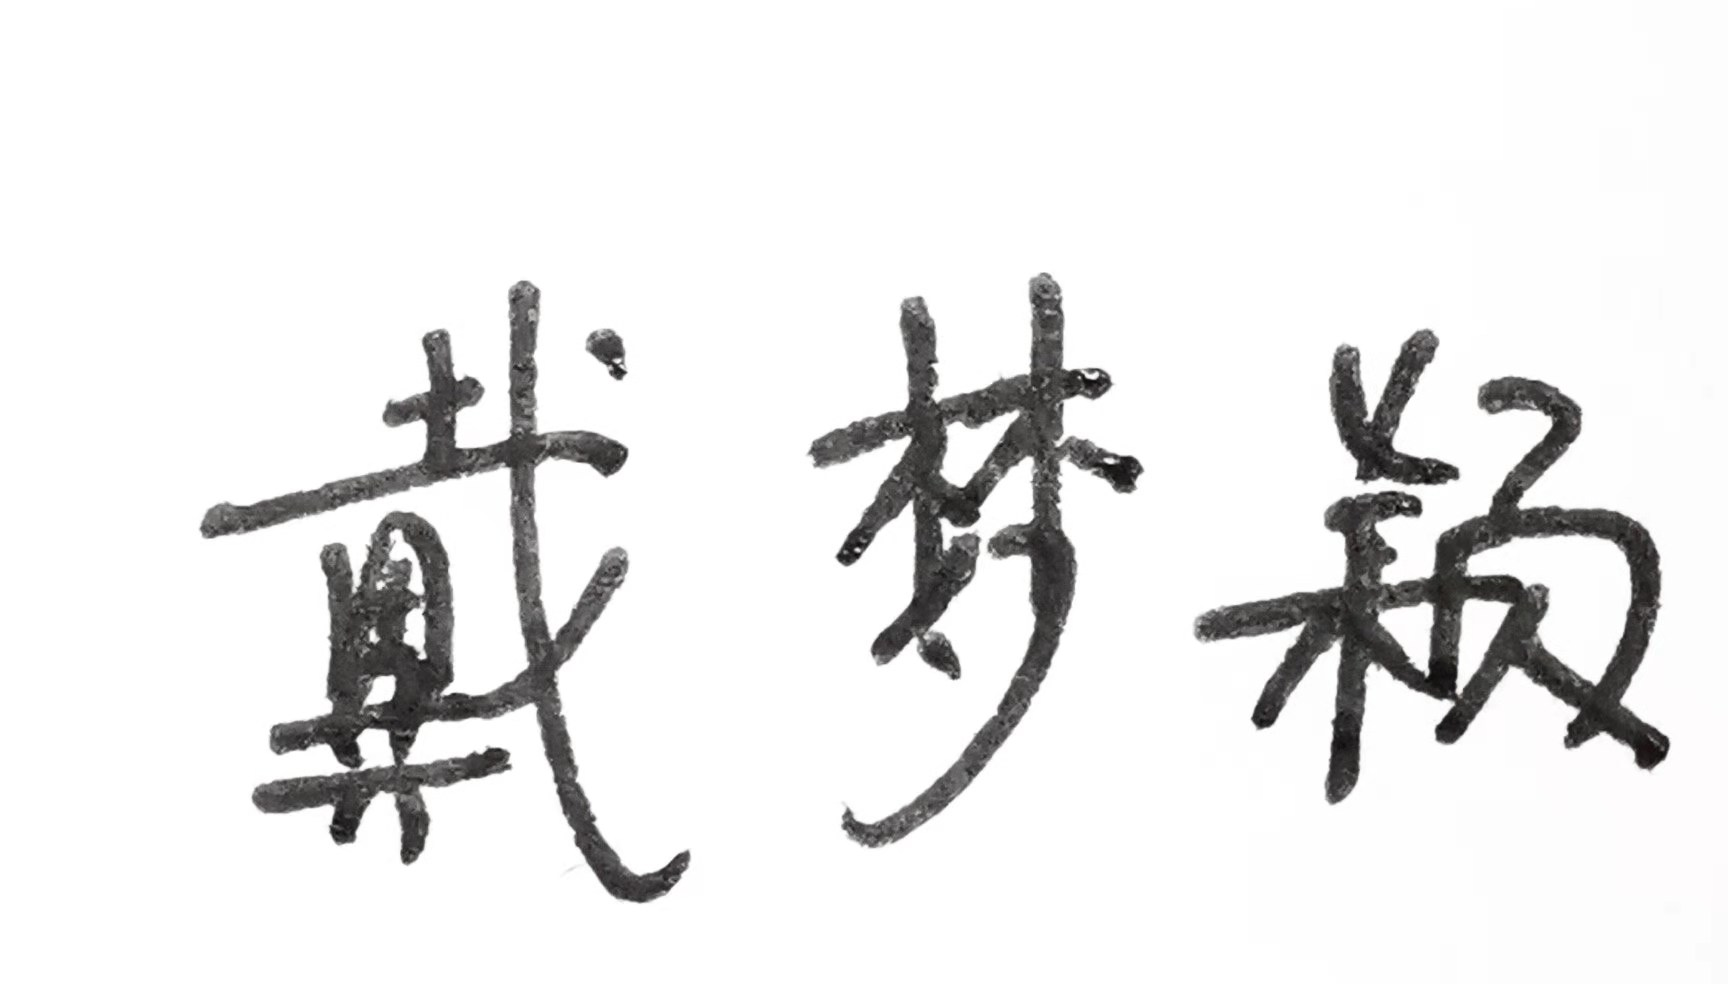 戴梦颖